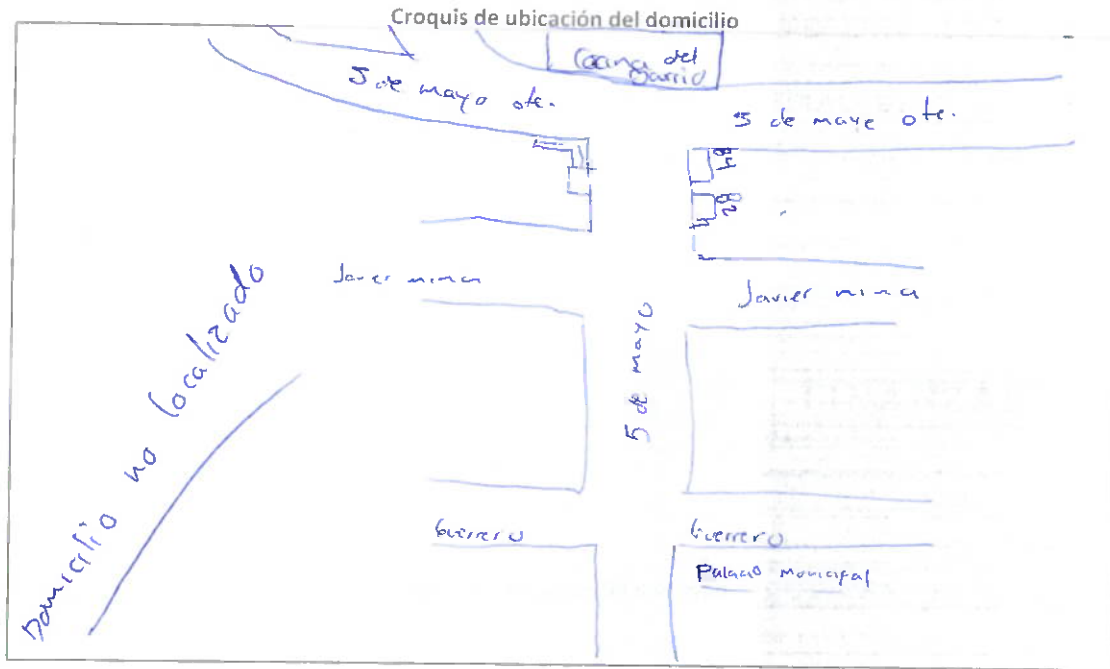 Croquis de ubicación del domicilio
Cocina del
Barrio
5 de mayo ote.
5 de maye ote.
84
82
Javier mina
Javier mina
5 de mayo
Domicilio no localizado
Guerrero
Guerrero
Palacio Municipal